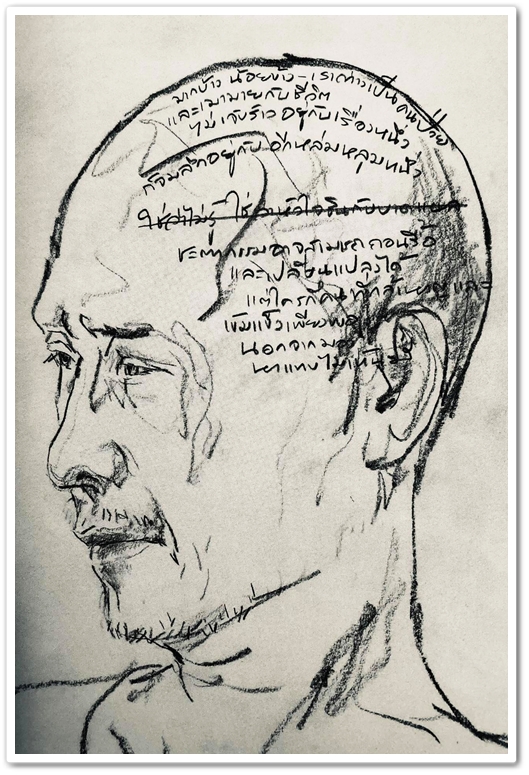 มากบ้าง น้อยบ้าง - เราต่างเป็นคนป่วย
และเมามายกับชีวิต
ไม่เจ็บร้าวอยู่กับเรื่องหนึ่ง
ก็จมลึกอยู่กับอีกหล่มหลุมหนึ่ง
ใช่ว่าไม่รู้ ใช่ว่าหัวใจชินกับบาดแผล
ชะตากรรมอาจสามารถถอนรื้อ
และเปลี่ยนแปลงได้
แต่ใครกี่คน และ
เข้มแข็งเพียงพอ
นอกจาก